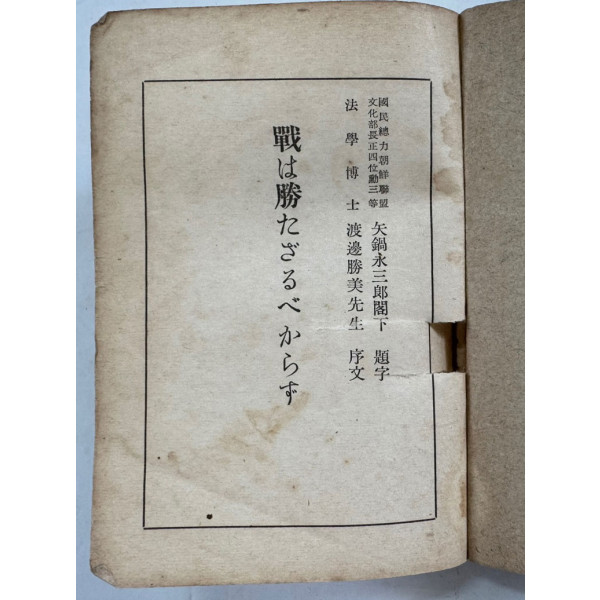 國民總力朝鮮聯盟
文化部長正四位勳三等
矢鍋永三郎閣下 題字
法學博士 渡邊勝美先生 序文
戰は勝たざるべからず